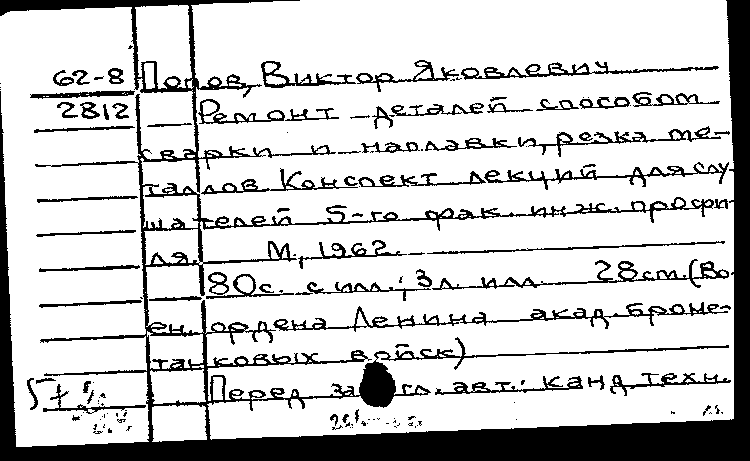 62-8 Попов, Виктор Яковлевич
2812 Ремонт деталей способом
сварки и наплавки, резка ме-
таллов Конспект лекций для слу-
шателей 5-го фак. инж. профи-
ля. М., 1962.
80с. с илл.; 3л. илл. 28см. (Во-
ен. ордена Ленина акад. броне-
танковых войск)
Перед загл. авт.: канд. техн.
57